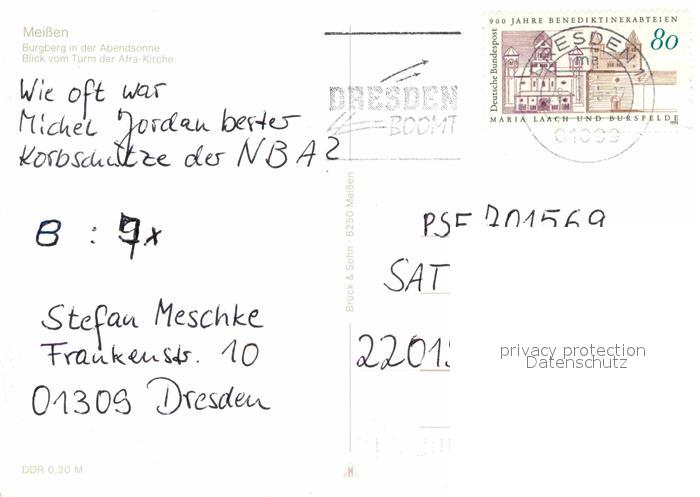 Meißen
Burgberg in der Abendsonne
Blick vom Turm der Afra-Kirche
Wie oft war
Michel Jordan bester
Korbschütze der NBA?
B : 7x
Stefan Meschke
Frankenstr. 10
01309 Dresden
DDR 0,20 M
Brück & Sohn · 8250 Meißen
DRESDEN
BOOMT
900 JAHRE BENEDIKTINERABTEIEN
Deutsche Bundespost
80
MARIA LAACH UND BURSFELDE
DRESDEN
ma
01099
PSF 701569
SAT
2201
privacy protection
Datenschutz